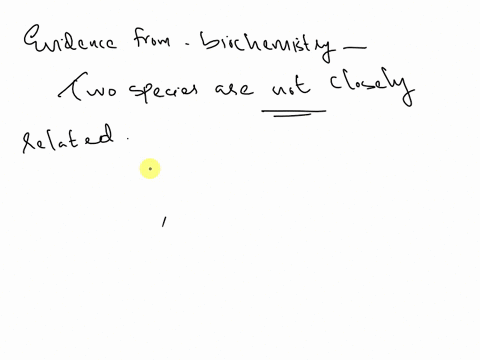 Evidence from. biochemistry —
Two species are not closely
related.